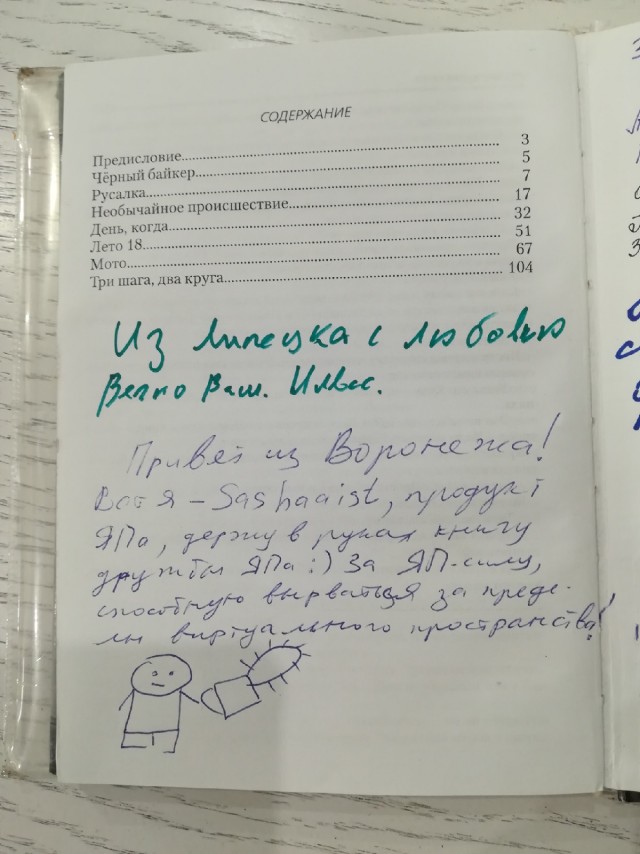 СОДЕРЖАНИЕ
Предисловие 3
Чёрный байкер 5
Русалка 7
Необычайное происшествие 17
День, когда 32
Лето 18 51
Мото 67
Три шага, два круга 104
Из Липецка с любовью
Вечно Ваш. Ильяс.
Привет из Воронежа!
Вот я – Sashaaist, продукт
ЯПа, держу в руках книгу
дружбы ЯПа :) За ЯП-силу,
способную вырваться за преде-
лы виртуального пространства!